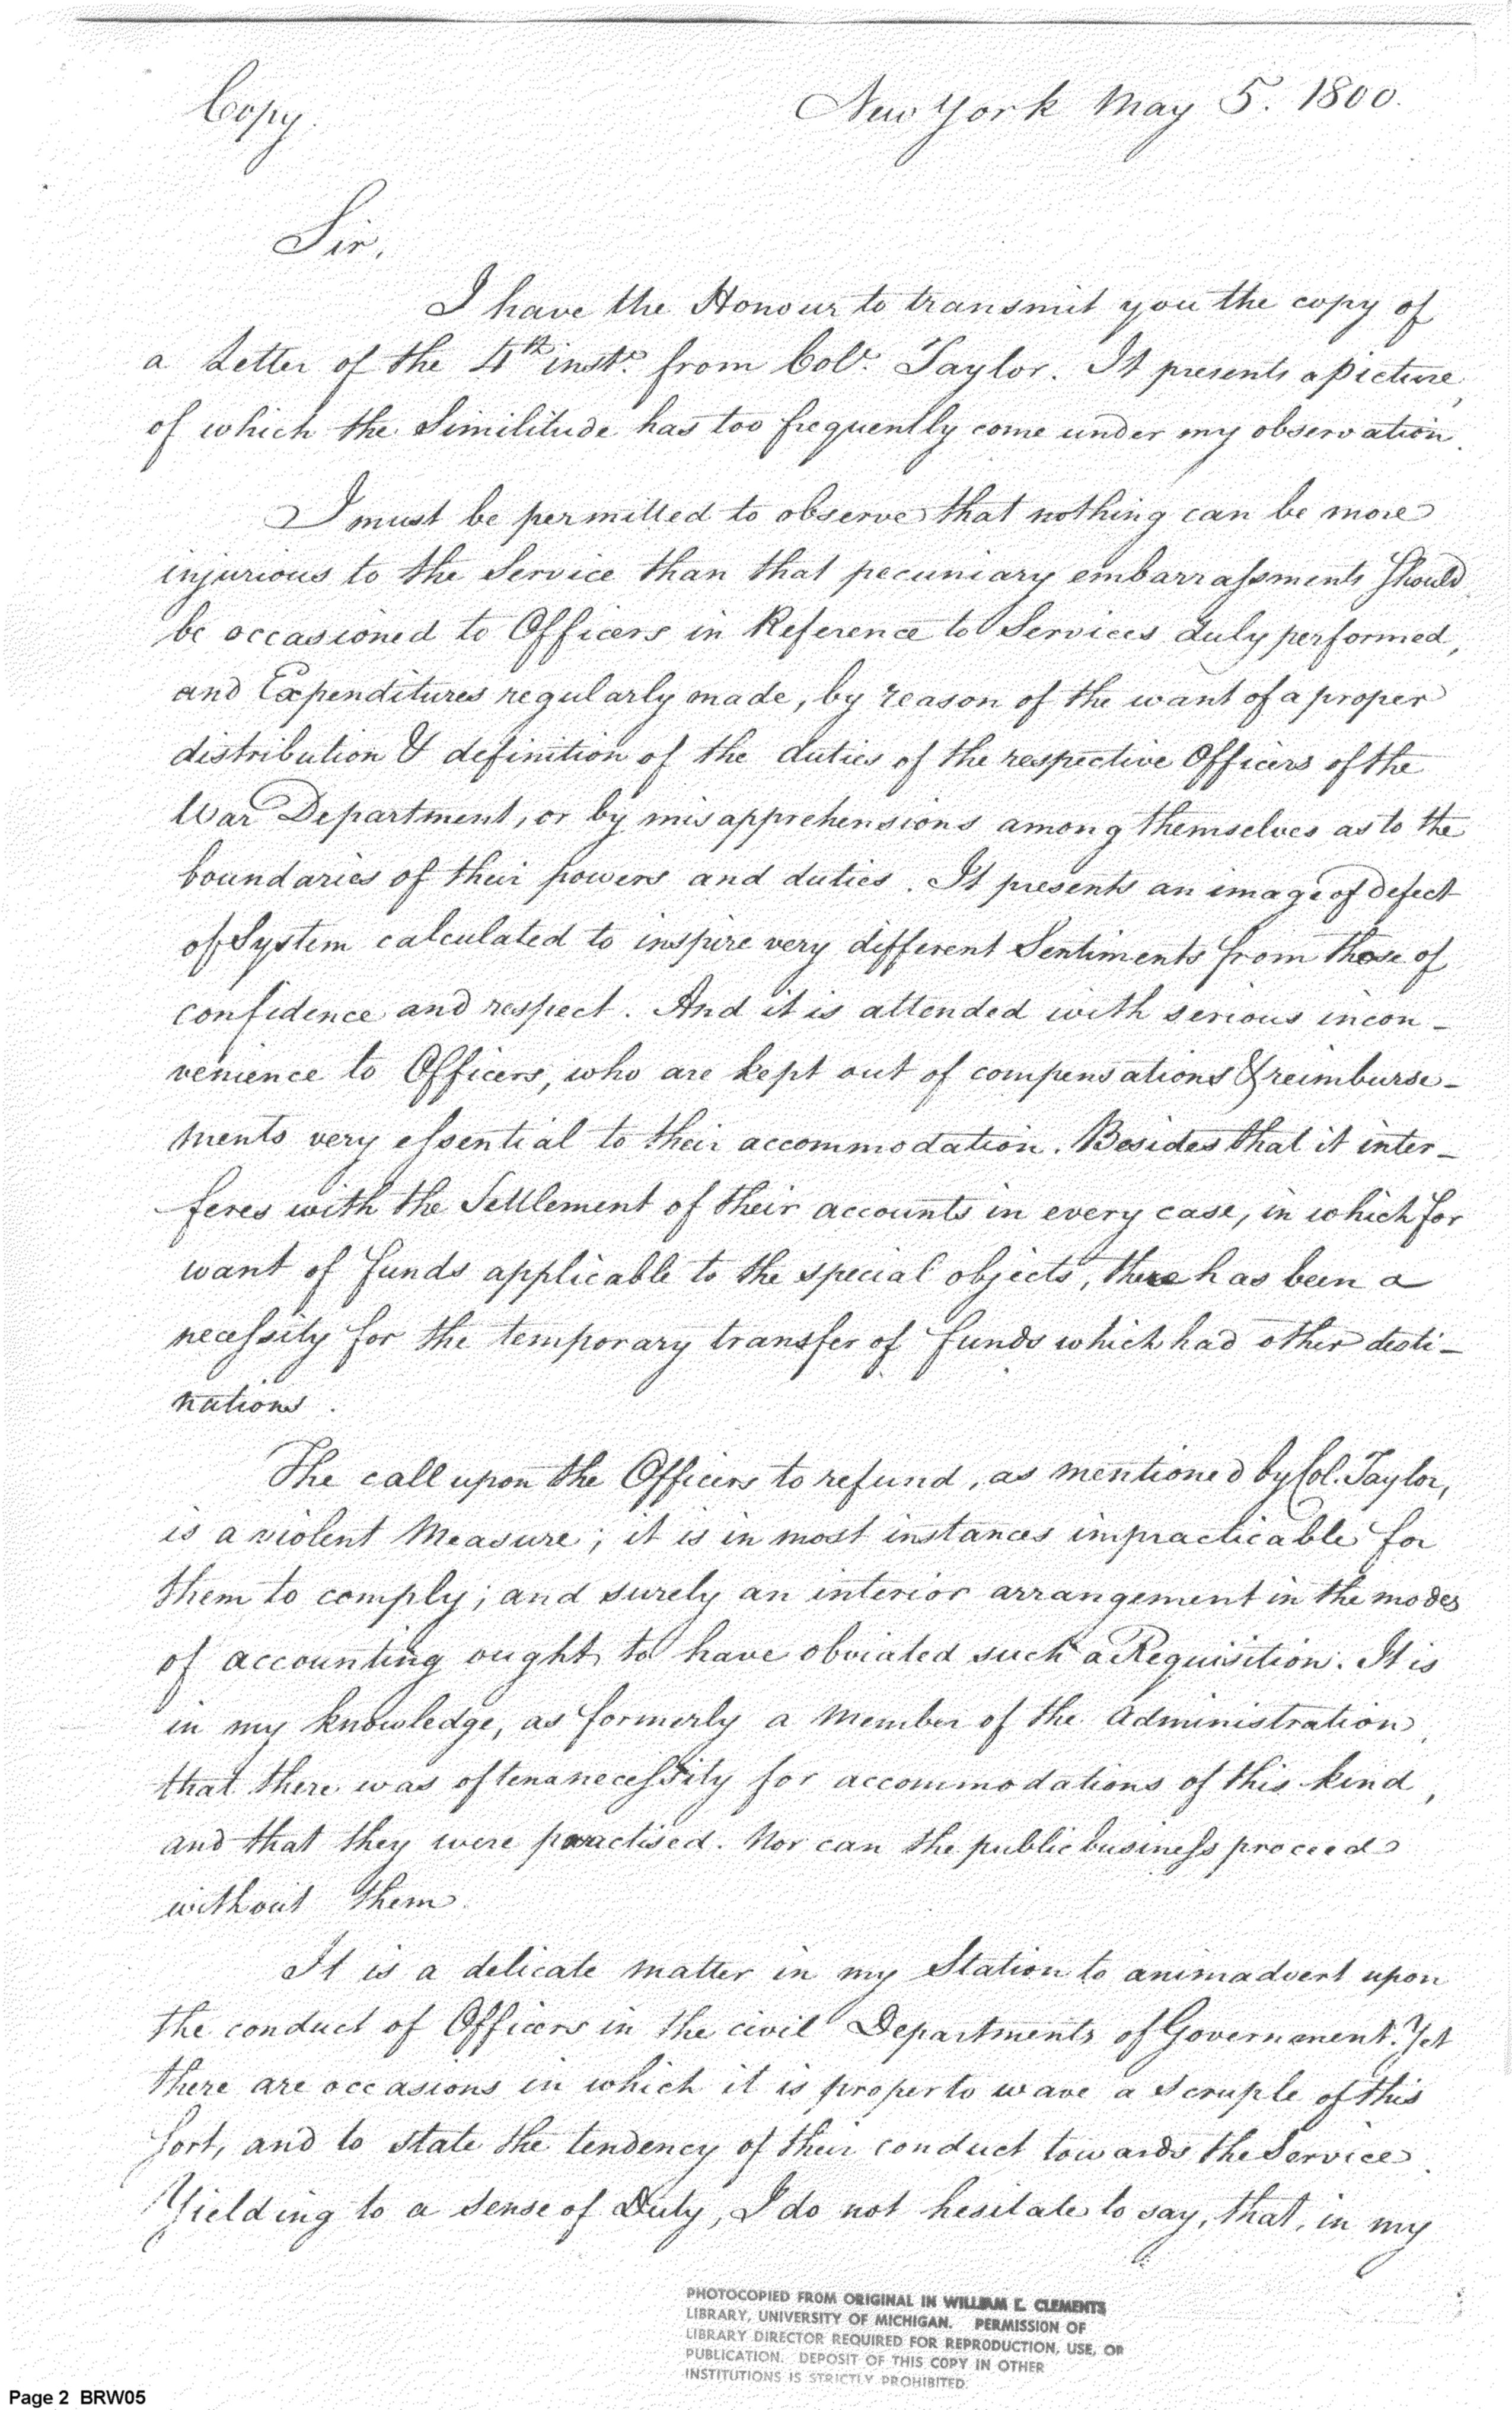 Copy.
New York May 5. 1800.
Sir,
I have the Honour to transmit you the copy of
a Letter of the 4th inst. from Col. Taylor. It presents a picture,
of which the Similitude has too frequently come under my observation.
I must be permitted to observe that nothing can be more
injurious to the Service than that pecuniary embarrassments should
be occasioned to Officers in Reference to Services duly performed,
and Expenditures regularly made, by reason of the want of a proper
distribution & definition of the duties of the respective Officers of the
War Department, or by misapprehensions among themselves as to the
boundaries of their powers and duties. It presents an image of defect
of System calculated to inspire very different Sentiments from those of
confidence and respect. And it is attended with serious incon-
venience to Officers, who are kept out of compensations & reimburse-
ments very essential to their accommodation. Besides that it inter-
feres with the Settlement of their accounts in every case, in which for
want of funds applicable to the special objects, there has been a
necessity for the temporary transfer of funds which had other desti-
nations.
The call upon the Officers to refund, as mentioned by Col. Taylor,
is a violent Measure; it is in most instances impracticable for
them to comply; and surely an interior arrangement in the modes
of accounting ought to have obviated such a Requisition. It is
in my knowledge, as formerly a Member of the Administration,
that there was often a necessity for accommodations of this kind,
and that they were practised. Nor can the public business proceed
without them.
It is a delicate matter in my Station to animadvert upon
the conduct of Officers in the civil Departments of Government. Yet
there are occasions in which it is proper to wave a scruple of this
sort, and to state the tendency of their conduct towards the Service.
Yielding to a sense of Duty, I do not hesitate to say, that, in my
PHOTOCOPIED FROM ORIGINAL IN WILLIAM L. CLEMENTS
LIBRARY, UNIVERSITY OF MICHIGAN. PERMISSION OF
LIBRARY DIRECTOR REQUIRED FOR REPRODUCTION, USE, OR
PUBLICATION. DEPOSIT OF THIS COPY IN OTHER
INSTITUTIONS IS STRICTLY PROHIBITED.
Page 2 BRW05